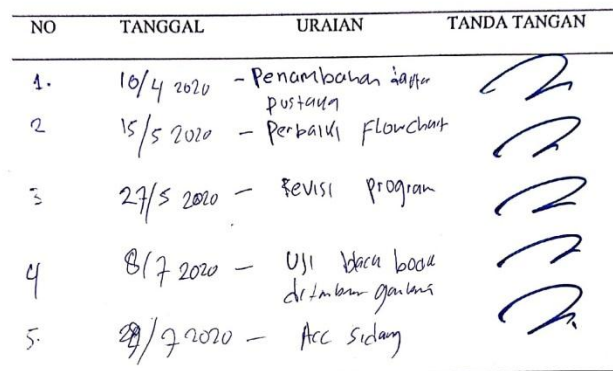 NO TANGGAL URAIAN TANDA TANGAN
1. 10/4 2020 - Penambahan daftar
pustaka
2 15/5 2020 - Perbaiki Flowchart
3 27/5 2020 - Revisi program
4 8/7 2020 - Uji
ditambah
5. 29/7 2020 - Acc Sidang